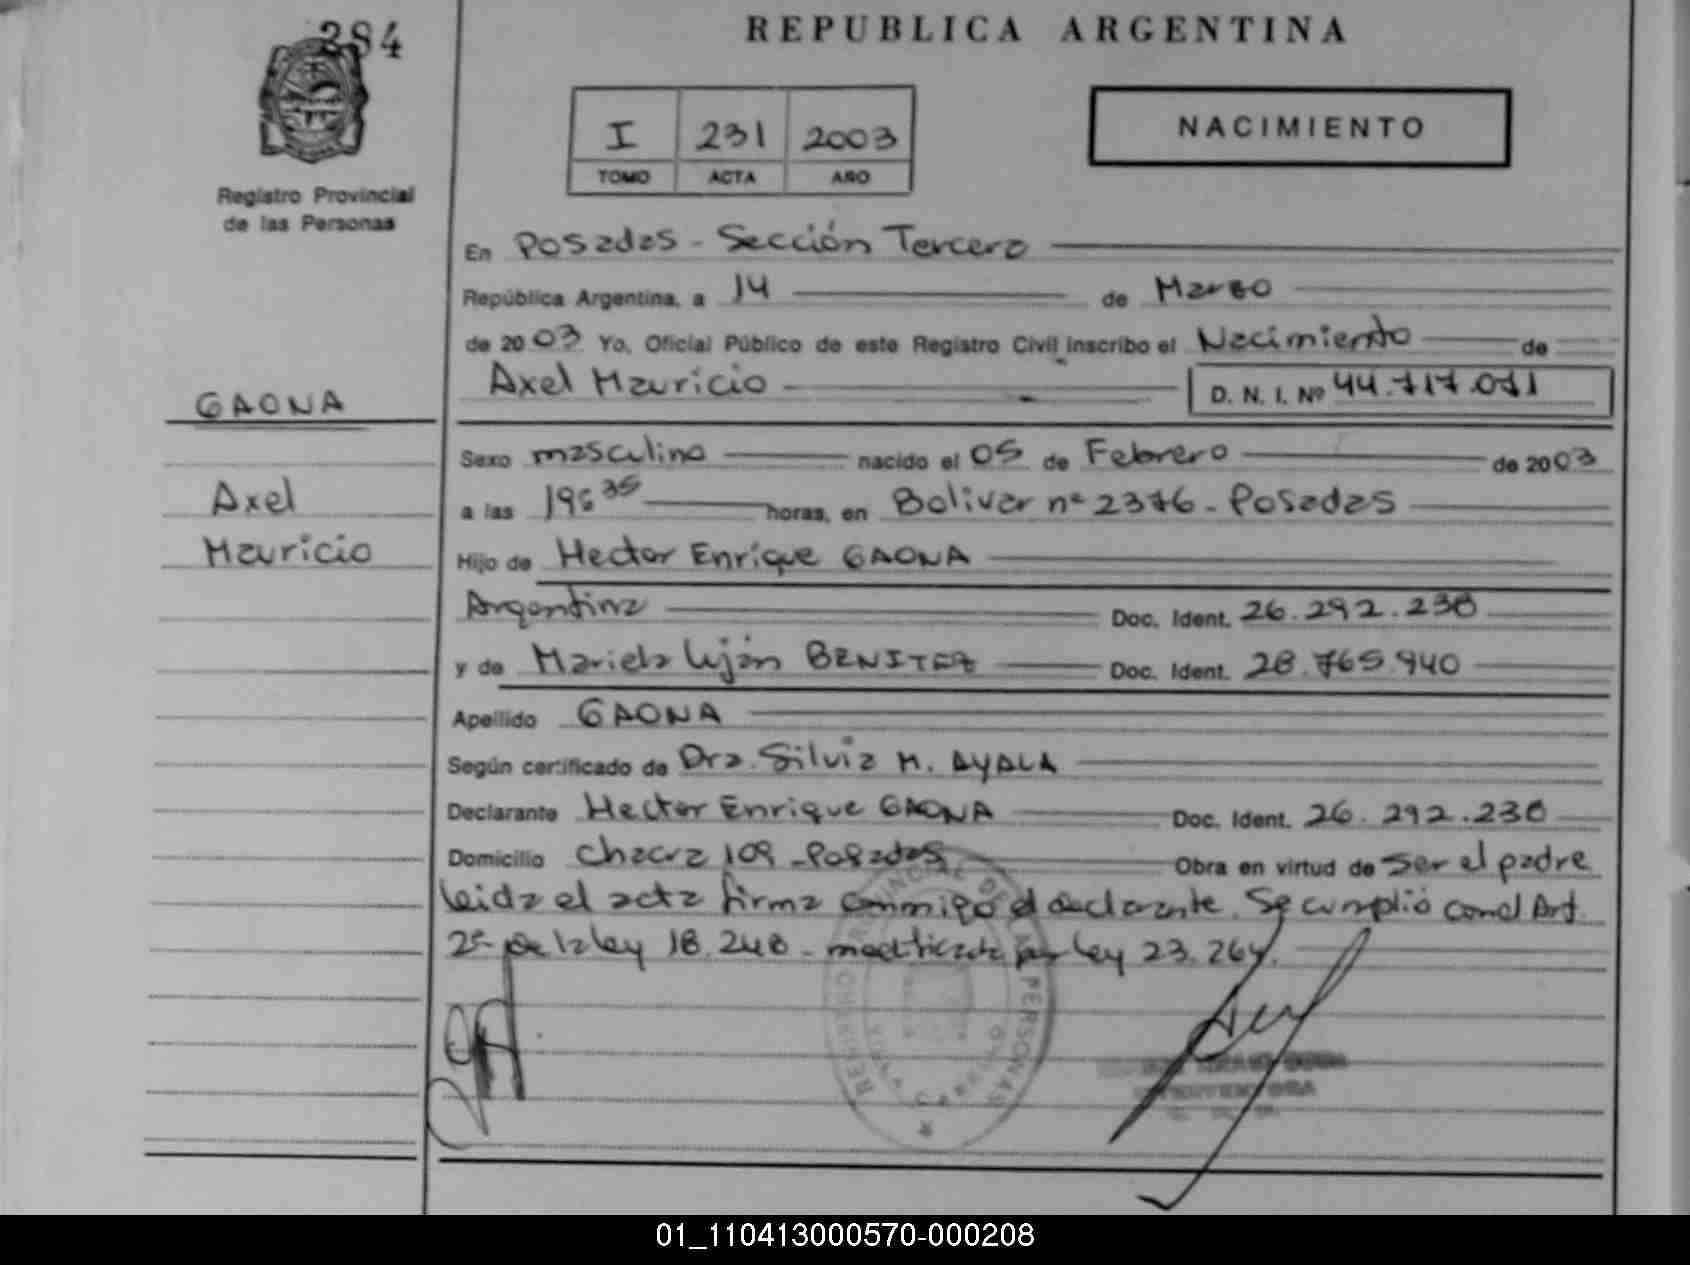 284
REPUBLICA ARGENTINA
I 231 2003
TOMO ACTA AÑO
NACIMIENTO
Registro Provincial
de las Personas
En Posadas - Sección Tercera
República Argentina, a 14 de Marzo
de 2003 Yo, Oficial Público de este Registro Civil inscribo el Nacimiento de
Axel Mauricio D. N. I. Nº 44.717.071
GAONA
Sexo masculino nacido el 05 de Febrero de 2003
Axel
a las 19:35 horas, en Bolivar nº 2376 - Posadas
Mauricio
Hijo de Hector Enrique GAONA
Argentina Doc. Ident. 26.292.238
y de Mariela Luján BENITEZ Doc. Ident. 28.765.940
Apellido GAONA
Según certificado de Dra. Silvia M. AYALA
Declarante Hector Enrique GAONA Doc. Ident. 26.292.238
Domicilio Chacra 109 - Posadas Obra en virtud de ser el padre
leida el acta firma conmigo el declarante. Se cumplió con el Art.
2º de la ley 18.248 - modificada por ley 23.264.
REGISTRO PROVINCIAL DE LAS PERSONAS
01_110413000570-000208